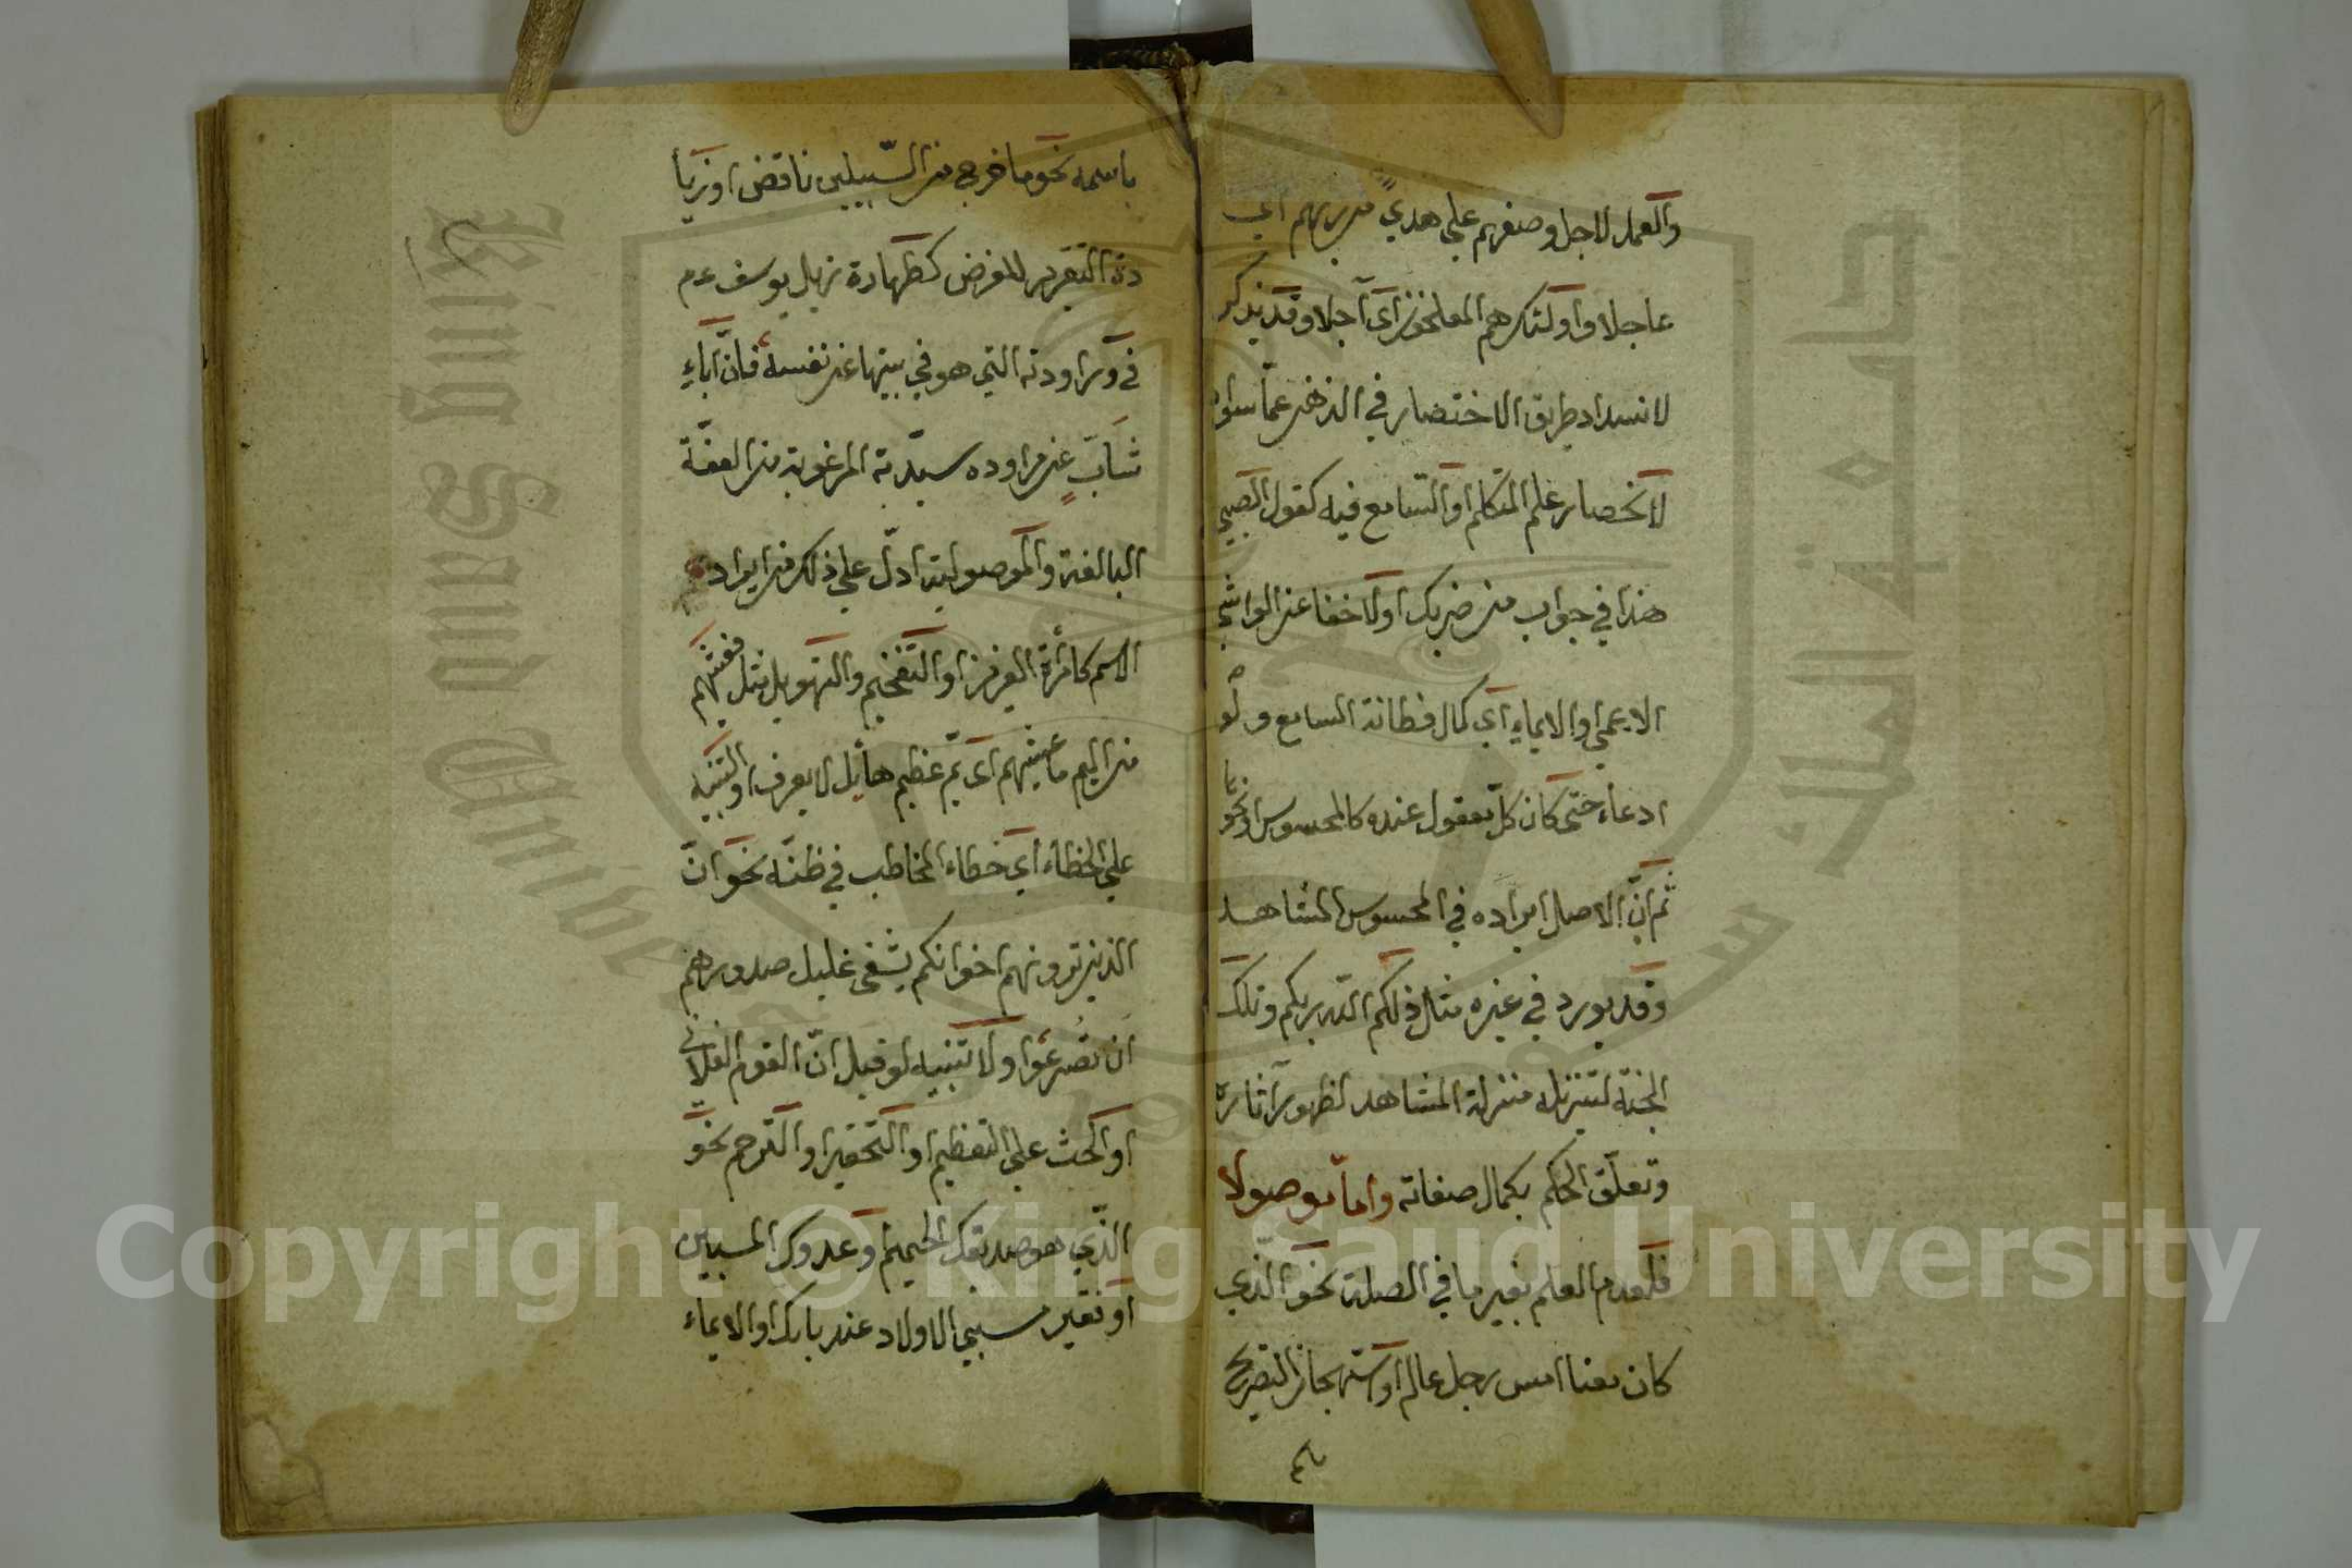 والعمل لاجل وصفهم علي هدي من ربهم اي
عاجلا واولئك هم المفلحون اي آجلا وقد يذكر
لانسداد طريق الاختصار في الذهن عما سواه
لانحصار علم المتكلم او السامع فيه كقول الصبي
هذا في جواب من ضربك اولاخفا عن الواشي
الاعمي او الايماء اي كمال فطانة السامع ولو
ادعاء حتى كان كل معقول عنده كالمحسوس او نحوها
ثم ان الاصل ايراده في المحسوس المشاهد
وقد يورد في غيره مثال ذلكم الله ربكم وتلك
الجنة لتنزيله منزلة المشاهد لظهور آثاره
وتعلق الحكم بكمال صفاته واما موصولا
فلعدم العلم بغير ما في الصلة نحو الذي
كان معنا امس رجل عالم او استهجان التصريح
باسمه نحو ما خرج من السبيلين ناقض او زيا
دة التقرير للغرض كطهارة نزيل يوسف عم
في وراودته التي هو في بيتها عن نفسه فان آباء
شاب عن مراوده سيدته المرغوبة من العفة
البالغة والموصولية ادل علي ذلك من ايراد
الاسم كامرأة العزيز او التفخيم والتهويل مثل فغشيهم
من اليم ما غشيهم اى يم عظيم هائل لا يعرف او التنبيه
علي الخطاء اي خطاء المخاطب في ظنه نحو ان
الذين ترونهم اخوانكم يشفى غليل صدورهم
ان تصرعوا ولا تنبيه لو قيل ان القوم الفلاني
او الحث علي التعظيم او التحقير او الترحم نحو
الذي هو صديقك الحميم او عدوك المبين
او نقير سبي الاولاد عند بابك او الايماء
Copyright © King Saud University
King Saud University
جامعة الملك سعود